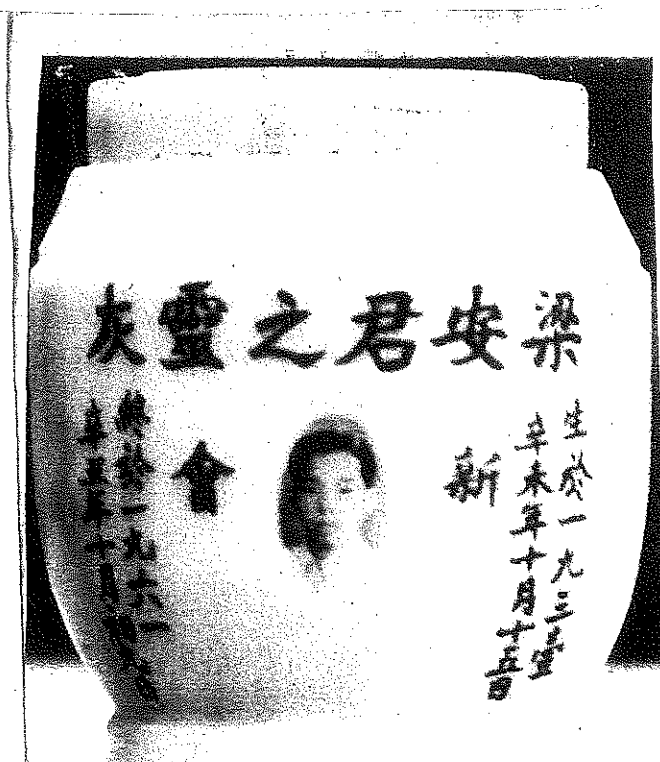 梁安君之靈灰
生於一九三
辛未年十月十五日
新會
終於一九六一
辛丑年十月